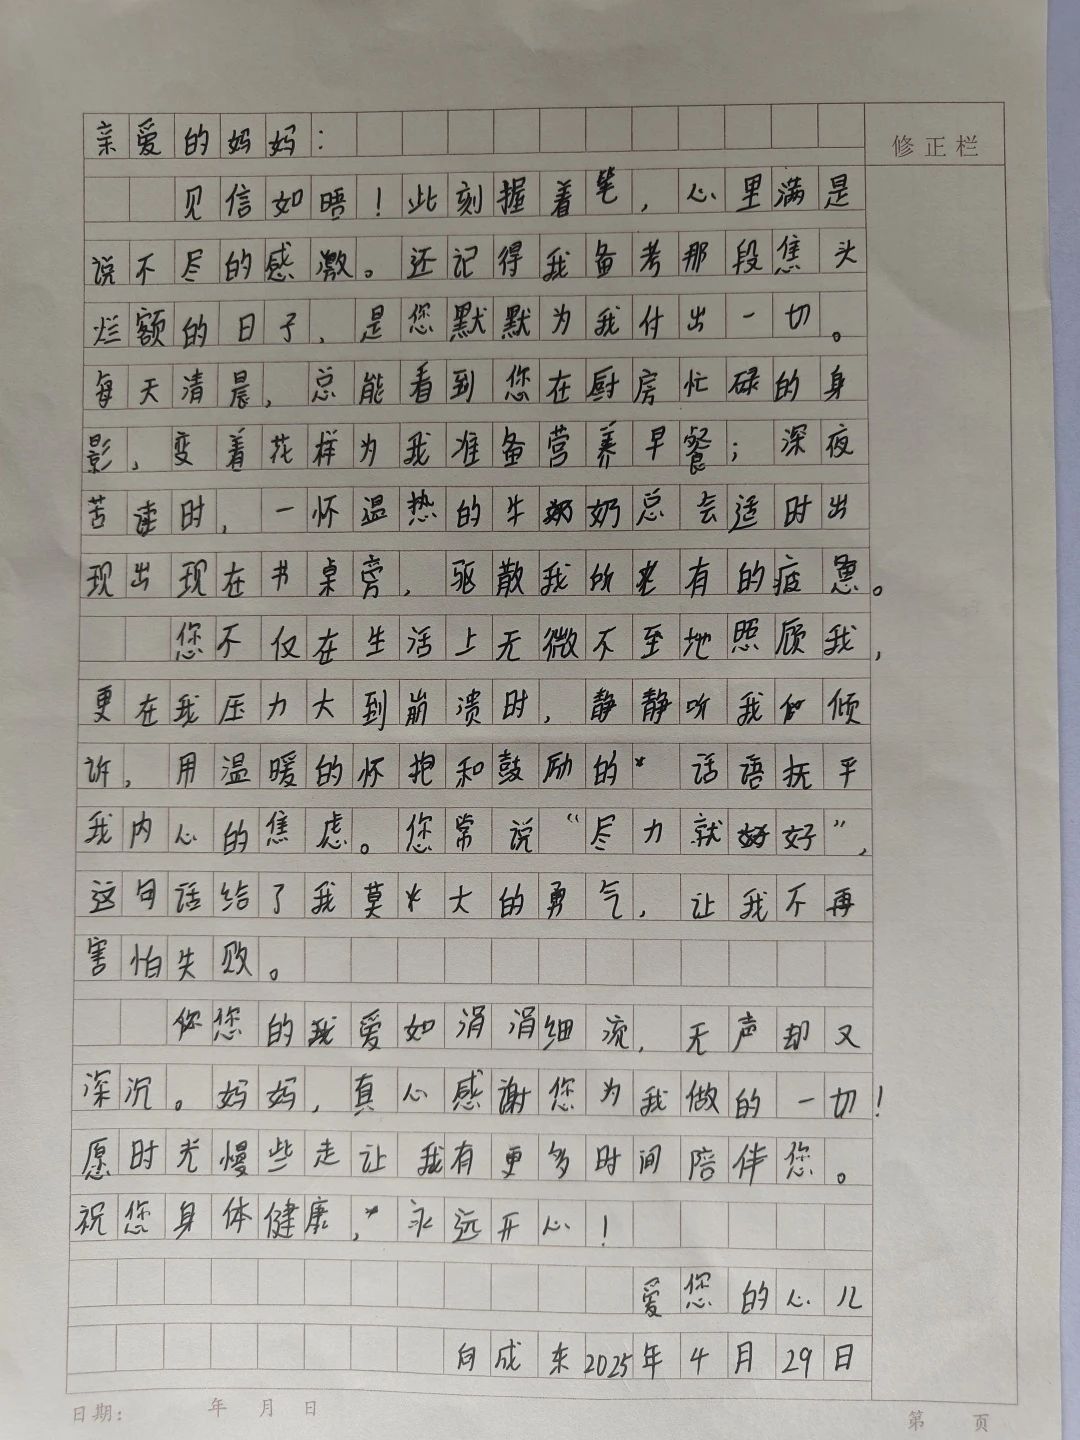 亲爱的妈妈：
修正栏
见信如晤！此刻握着笔，心里满是
说不尽的感激。还记得我备考那段焦头
烂额的日子，是您默默为我付出一切。
每天清晨，总能看到您在厨房忙碌的身
影，变着花样为我准备营养早餐；深夜
苦读时，一怀温热的牛奶总会适时出
现出现在书桌旁，驱散我所有的疲惫。
您不仅在生活上无微不至地照顾我，
更在我压力大到崩溃时，静静听我的倾
诉，用温暖的怀抱和鼓励的话语抚平
我内心的焦虑。您常说“尽力就好”，
这句话给了我莫大的勇气，让我不再
害怕失败。
您的爱如涓涓细流，无声却又
深沉。妈妈，真心感谢您为我做的一切！
愿时光慢些走让我有更多时间陪伴您。
祝您身体健康，永远开心！
爱您的心儿
成东2025年4月29日
日期： 年 月 日
第 页